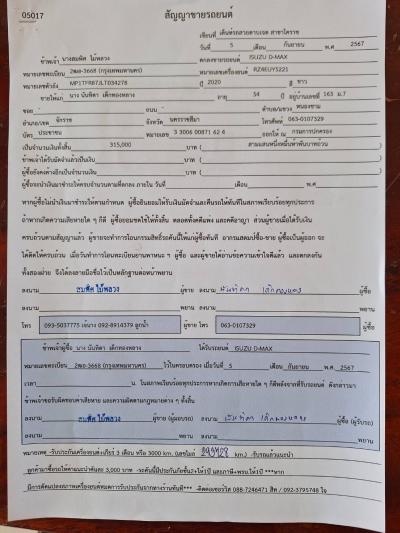 05017
สัญญาขายรถยนต์
เขียนที่ เต็นท์รถสวยตามเจต สาขาโคราช
วันที่ 5 เดือน กันยายน พ.ศ 2567
ข้าพเจ้า นางสมพิศ ไม้พลวง ตกลงขายรถยนต์ ISUZU D-MAX
หมายเลขทะเบียน 2ฒอ-3668 (กรุงเทพมหานคร) หมายเลขเครื่องยนต์ RZ4EUY5221
หมายเลขตัวถัง MP1TFR87JLT034278 ปี 2020 สี ขาว
ขายให้แก่ นาง นันทิดา เด็กทองหลาง อายุ 54 ปี อยู่บ้านเลขที่ 163 ม.7
ซอย - ถนน - ตำบล/แขวง หนองขาม
อำเภอ/เขต จักราช จังหวัด นครราชสีมา โทรศัพท์ 063-0107329
บัตร ประชาชน หมายเลข 3 3006 00871 62 4 ออกให้ ณ กรมการปกครอง
เป็นจำนวนเงินทั้งสิ้น 315,000 บาท ( สามแสนหนึ่งหมื่นห้าพันบาทถ้วน )
ข้าพเจ้าได้รับมัดจำแล้วเป็นเงิน บาท ( )
ผู้ซื้อยังคงค้างอีกเป็นจำนวนเงิน บาท ( )
ผู้ซื้อจะนำเงินมาชำระให้ครบจำนวนตามที่ตกลง ภายใน วันที่ เดือน พ.ศ
หากผู้ซื้อไม่นำเงินมาชำระให้ตามกำหนด ผู้ซื้อยินยอมให้ริบเงินมัดจำและคืนรถให้ทันทีในสภาพเรียบร้อยทุกประการ
ถ้าหากเกิดความเสียหายใด ๆ ก็ดี ผู้ซื้อยอมชดใช้ให้ทั้งสิ้น ตลอดทั้งคดีแพ่ง และคดีอาญา ส่วนผู้ขายเมื่อได้รับเงิน
ครบถ้วนตามสัญญาแล้ว ผู้ขายจะทำการโอนกรรมสิทธิ์รถคันนี้ให้แก่ผู้ซื้อทันที อากรแสตมป์ซื้อ-ขาย ผู้ซื้อเป็นผู้ออก จะ
ได้คิดให้ครบถ้วน เมื่อวันทำการโอนทะเบียนยานพาหนะ ฯ ผู้ซื้อ และผู้ขายได้อ่านข้อความเข้าใจดีแล้ว และตกลงกัน
ทั้งสองฝ่าย จึงได้ลงลายมือชื่อไว้เป็นหลักฐานต่อหน้าพยาน
ลงนาม สมพิศ ไม้พลวง ผู้ขาย ลงนาม นันทิดา เด็กทองหลาง ผู้ซื้อ
ลงนาม พยาน ลงนาม พยาน
โทร 093-5037775 092-8914379 ลูกน้ำ ผู้ขาย โทร 063-0107329 ผู้ซื้อ
ข้าพเจ้าผู้ซื้อ นาง นันทิดา เด็กทองหลาง ได้รับรถยนต์ ISUZU D-MAX
หมายเลขทะเบียน 2ฒอ-3668 (กรุงเทพมหานคร) ไว้ในครอบครอง เมื่อวันที่ 5 เดือน กันยายน พ.ศ 2567
เวลา น. ในสภาพเรียบร้อยทุกประการหากเกิดการเสียหายใด ๆ ก็ดีหลังจากที่รับรถยนต์ ดังกล่าวมา
ข้าพเจ้าขอรับผิดชอบค่าเสียหาย และความผิดตามกฎหมายต่าง ๆ ทั้งสิ้น
ลงนาม สมพิศ ไม้พลวง ผู้ขาย (ผู้มอบรถ) ลงนาม นันทิดา เด็กทองหลาง ผู้ซื้อ (ผู้รับรถ)
ลงนาม พยาน ลงนาม พยาน
หมายเหตุ -รับประกันเครื่องยนต์เกียร์ 3 เดือน หรือ 3000 km. (เลขไมล์ km.) -รับรถแล้วแนะนำ
ลูกค้ามาซื้อรถให้ค่าแนะนำคันละ 3,000 บาท -รถคันนี้มีประกันภัยชั้น2+ให้1ปี และภาษี+พรบ.ให้1ปี ***หาก
มีการดัดแปลงสภาพเครื่องยนต์หมดการรับประกันจากทางร้านทันที*** -ติดต่อเซอร์วิส 088-7246471 สิท / 092-3795748 ใจ